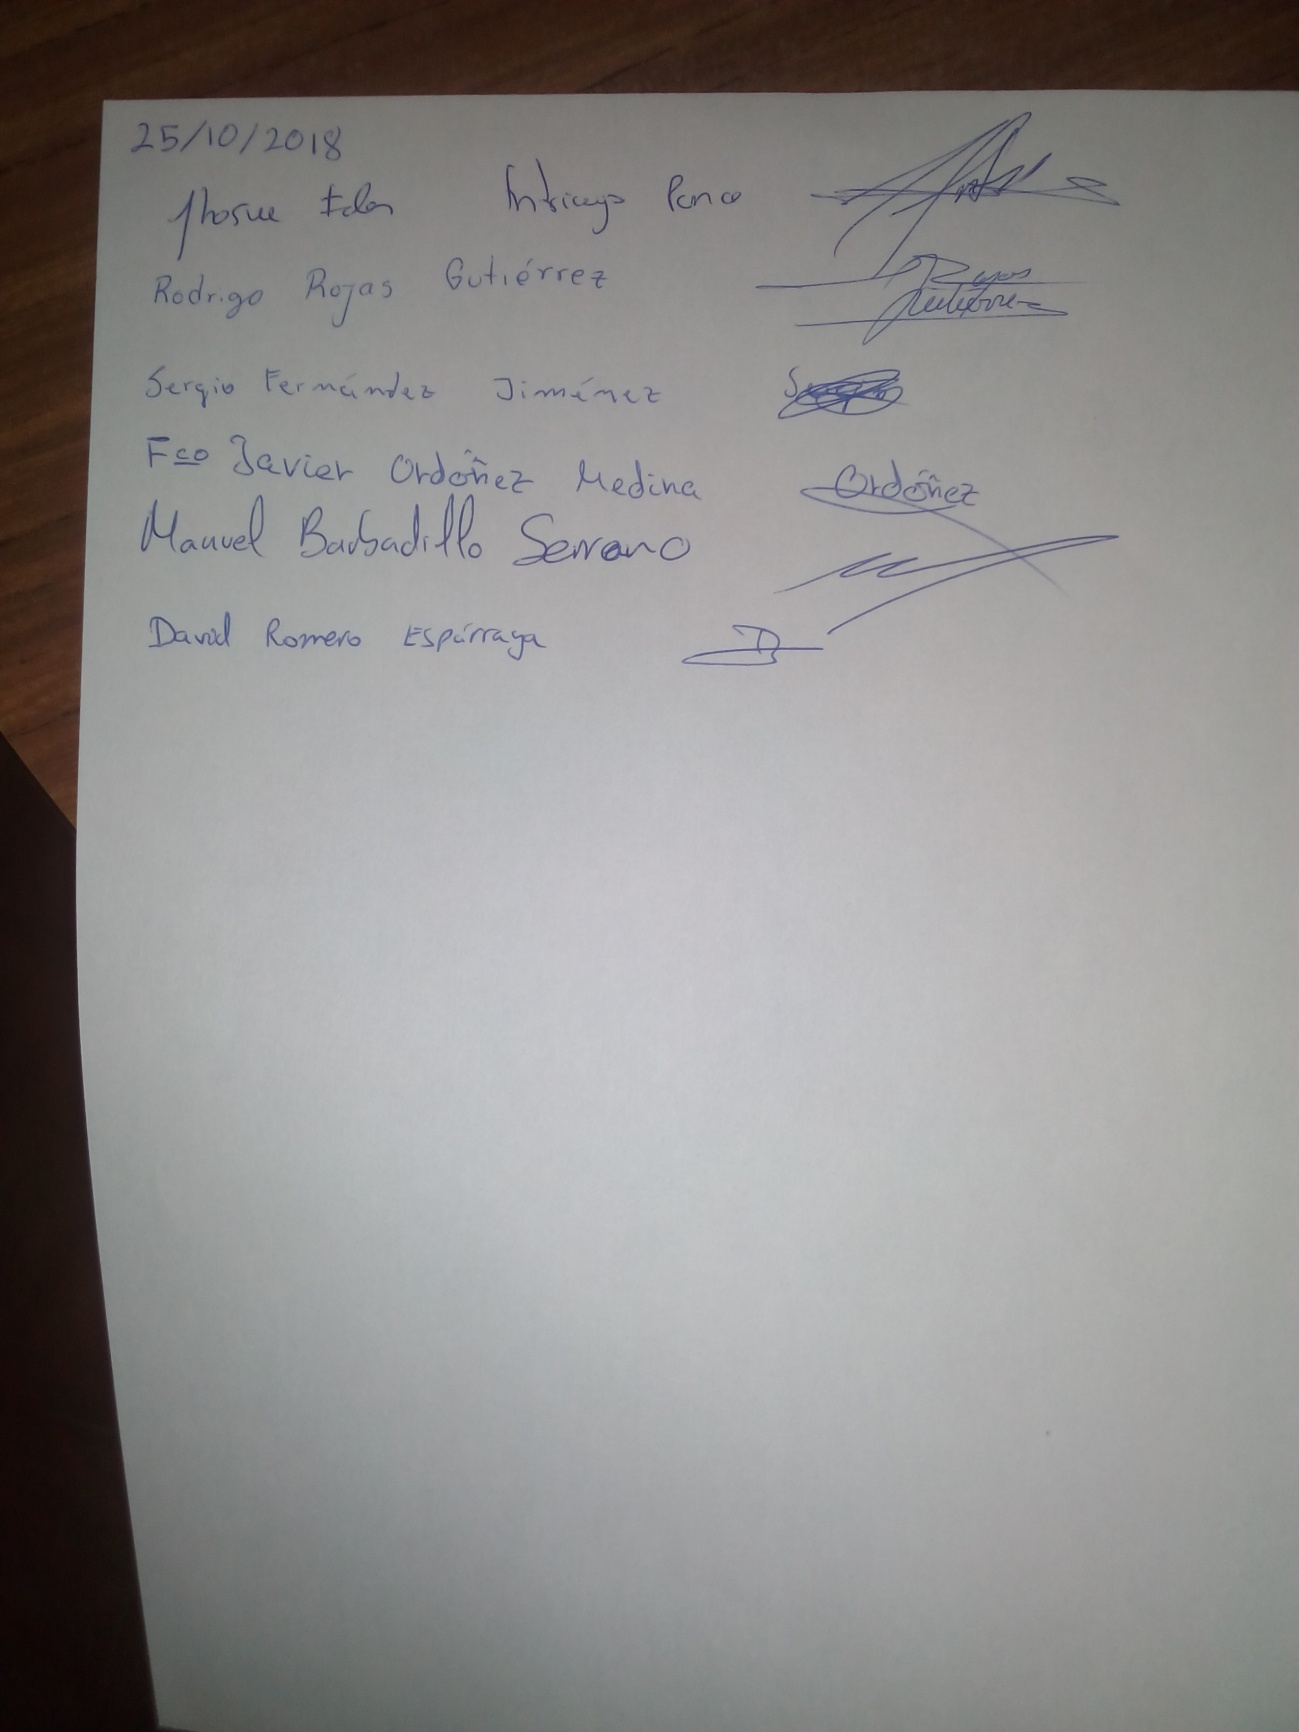 25/10/2018
Jhosue Eden Intriago Ponce
Rodrigo Rojas Gutiérrez Rojas Gutiérrez
Sergio Fernández Jiménez
Fco Javier Ordóñez Medina Ordóñez
Manuel Barbadillo Serrano
David Romero Espárraga